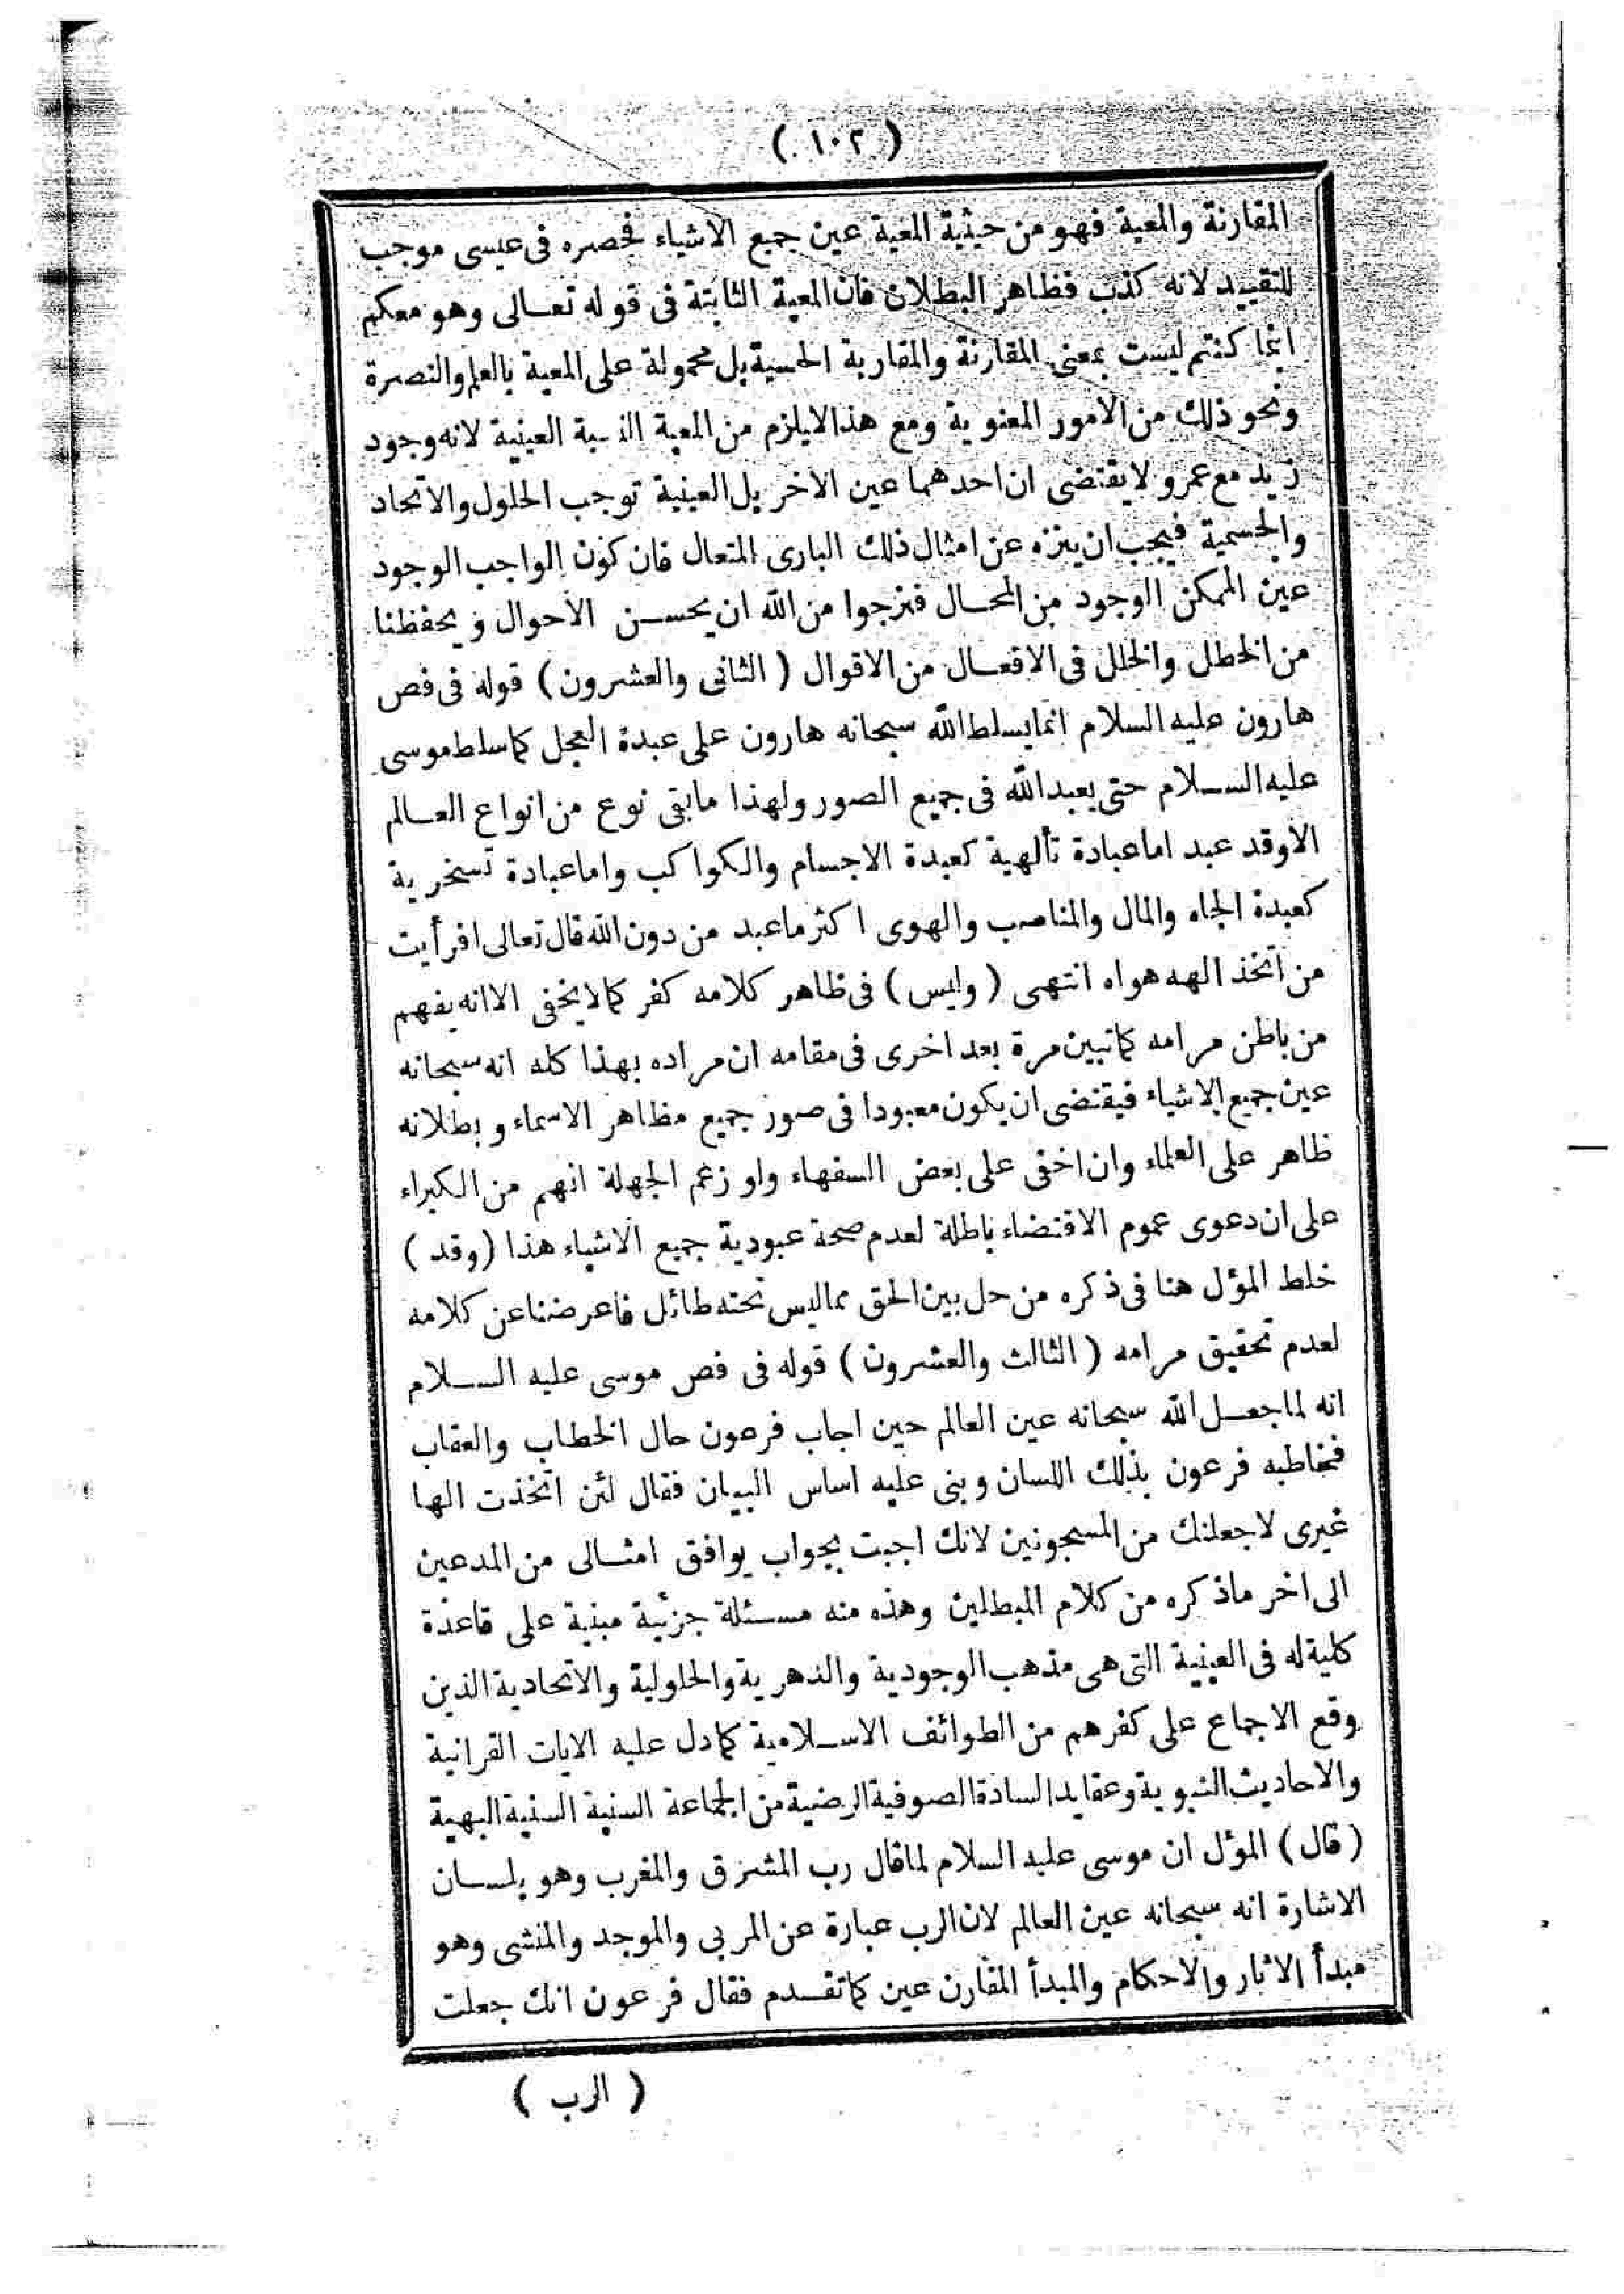 (١٠٢)
المقارنة والمعية فهو من حيثية المعية عين جميع الاشياء فحصره فى عيسى موجب
للتقييد لانه كذب فظاهر البطلان فان المعية الثابتة فى قوله تعالى وهو معكم
اينما كنتم ليست بمعنى المقارنة والمقاربة الحسية بل محمولة على المعية بالعلم والنصرة
ونحو ذلك من الامور المعنوية ومع هذا لايلزم من المعية النسبة العينية لانه وجود
زيد مع عمرو لا يقتضى ان احدهما عين الآخر بل العينية توجب الحلول والاتحاد
والجسمية فيجب ان ينزه عن امثال ذلك البارى المتعال فان كون الواجب الوجود
عين الممكن الوجود من المحال فنرجوا من الله ان يحسن الاحوال ويحفظنا
من الخطل والخلل فى الافعال من الاقوال (الثانى والعشرون) قوله فى فص
هارون عليه السلام انما يسلط الله سبحانه هارون على عبدة العجل كما سلط موسى
عليه السلام حتى يعبد الله فى جميع الصور ولهذا ما بقى نوع من انواع العالم
الا وقد عبد اما عبادة تألهية كعبدة الاجسام والكواكب واما عبادة تسخرية
كعبدة الجاه والمال والمناصب والهوى اكثر ما عبد من دون الله قال تعالى افرأيت
من اتخذ الهه هواه انتهى (وليس) فى ظاهر كلامه كفر كما لا يخفى الا انه يفهم
من باطن مرامه كما تبين مرة بعد اخرى فى مقامه ان مراده بهذا كله انه سبحانه
عين جميع الاشياء فيقتضى ان يكون معبودا فى صور جميع مظاهر الاسماء وبطلانه
ظاهر على العلماء وان اخفى على بعض السفهاء ولو زعم الجهلة انهم من الكبراء
على ان دعوى عموم الاقتضاء باطلة لعدم صحة عبودية جميع الاشياء هذا (وقد)
خلط المؤل هنا فى ذكره من حل بين الحق مماليس تحته طائل فاعرضنا عن كلامه
لعدم تحقيق مرامه (الثالث والعشرون) قوله فى فص موسى عليه السلام
انه لما جعل الله سبحانه عين العالم حين اجاب فرعون حال الخطاب والعقاب
فخاطبه فرعون بذلك اللسان وبنى عليه اساس البيان فقال لئن اتخذت الها
غيرى لاجعلنك من المسجونين لانك اجبت بجواب يوافق امثالى من المدعين
الى اخر ما ذكره من كلام المبطلين وهذه منه مسئلة جزئية مبنية على قاعدة
كلية له فى العينية التى هى مذهب الوجودية والدهرية والحلولية والاتحادية الذين
وقع الاجماع على كفرهم من الطوائف الاسلامية كما دل عليه الايات القرانية
والاحاديث النبوية وعقايد السادة الصوفية الرضية من الجماعة السنية السنية البهية
(قال) المؤل ان موسى عليه السلام لما قال رب المشرق والمغرب وهو بلسان
الاشارة انه سبحانه عين العالم لان الرب عبارة عن المربى والموجد والمنشى وهو
مبدأ الاثار والاحكام والمبدأ المقارن عين كما تقدم فقال فرعون انك جعلت
(الرب)